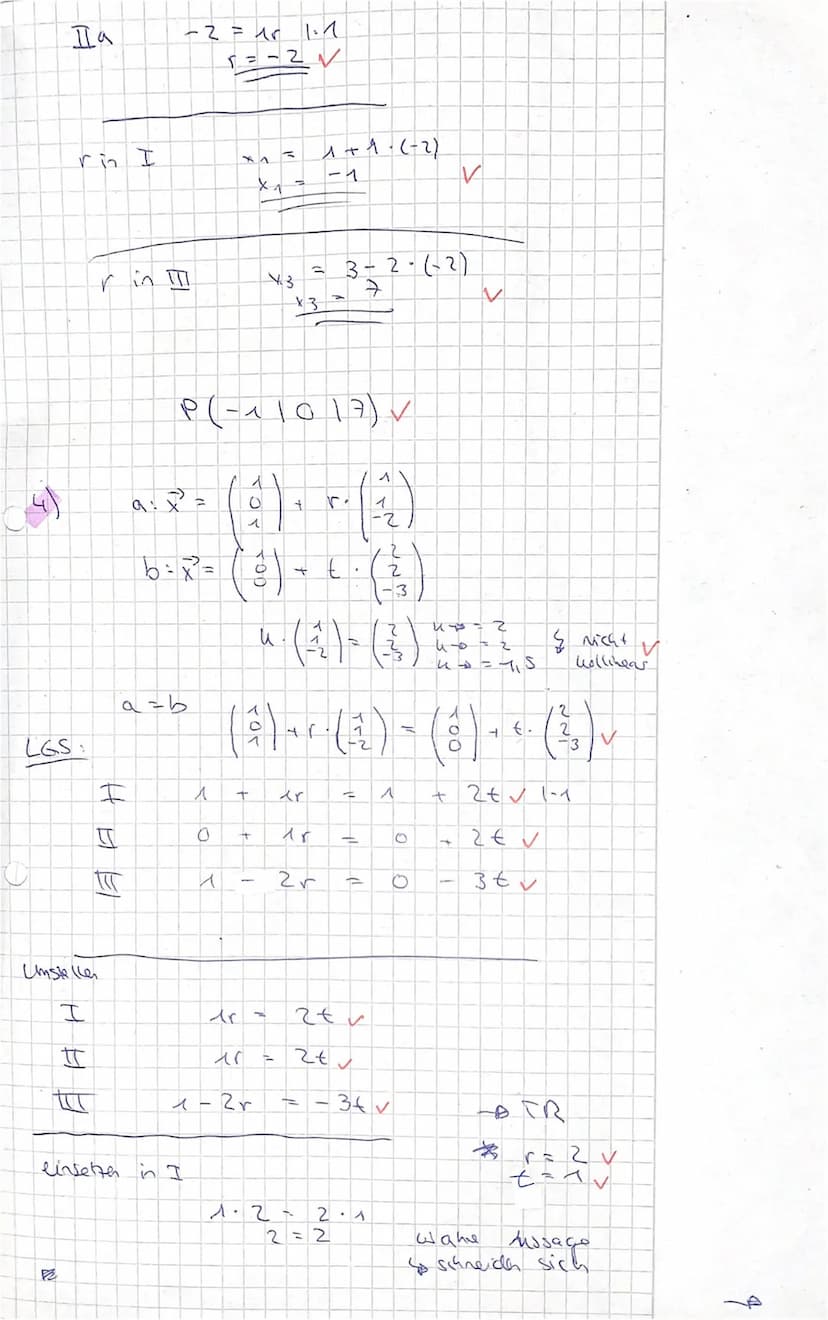 IIa -2 = 1r |:1
r = -2 ✓
r in I x₁ = 1 + 1 · (-2)
x₁ = -1 ✓
r in III x₃ = 3 - 2 · (-2)
x₃ = 7 ✓
P(-1|0|7) ✓
4) a: x⃗ = (1 0 1) + r · (1 1 -2)
b: x⃗ = (1 0 0) + t · (2 2 -3)
u · (1 1 -2) = (2 2 -3) u → = 2 u → = 2 u → = 1,5 ↯ nicht kollinear ✓
a = b (1 0 1) + r · (1 1 -2) = (1 0 0) + t · (2 2 -3) ✓
LGS:
I 1 + 1r = 1 + 2t ✓ |-1
II 0 + 1r = 0 + 2t ✓
III 1 - 2r = 0 - 3t ✓
Umstellen
I 1r = 2t ✓
II 1r = 2t ✓
III 1 - 2r = -3t ✓
→ TR
* r = 2 ✓
t = 1 ✓
einsetzen in I
1 · 2 = 2 · 1
2 = 2 wahre Aussage
↳ schneiden sich
→